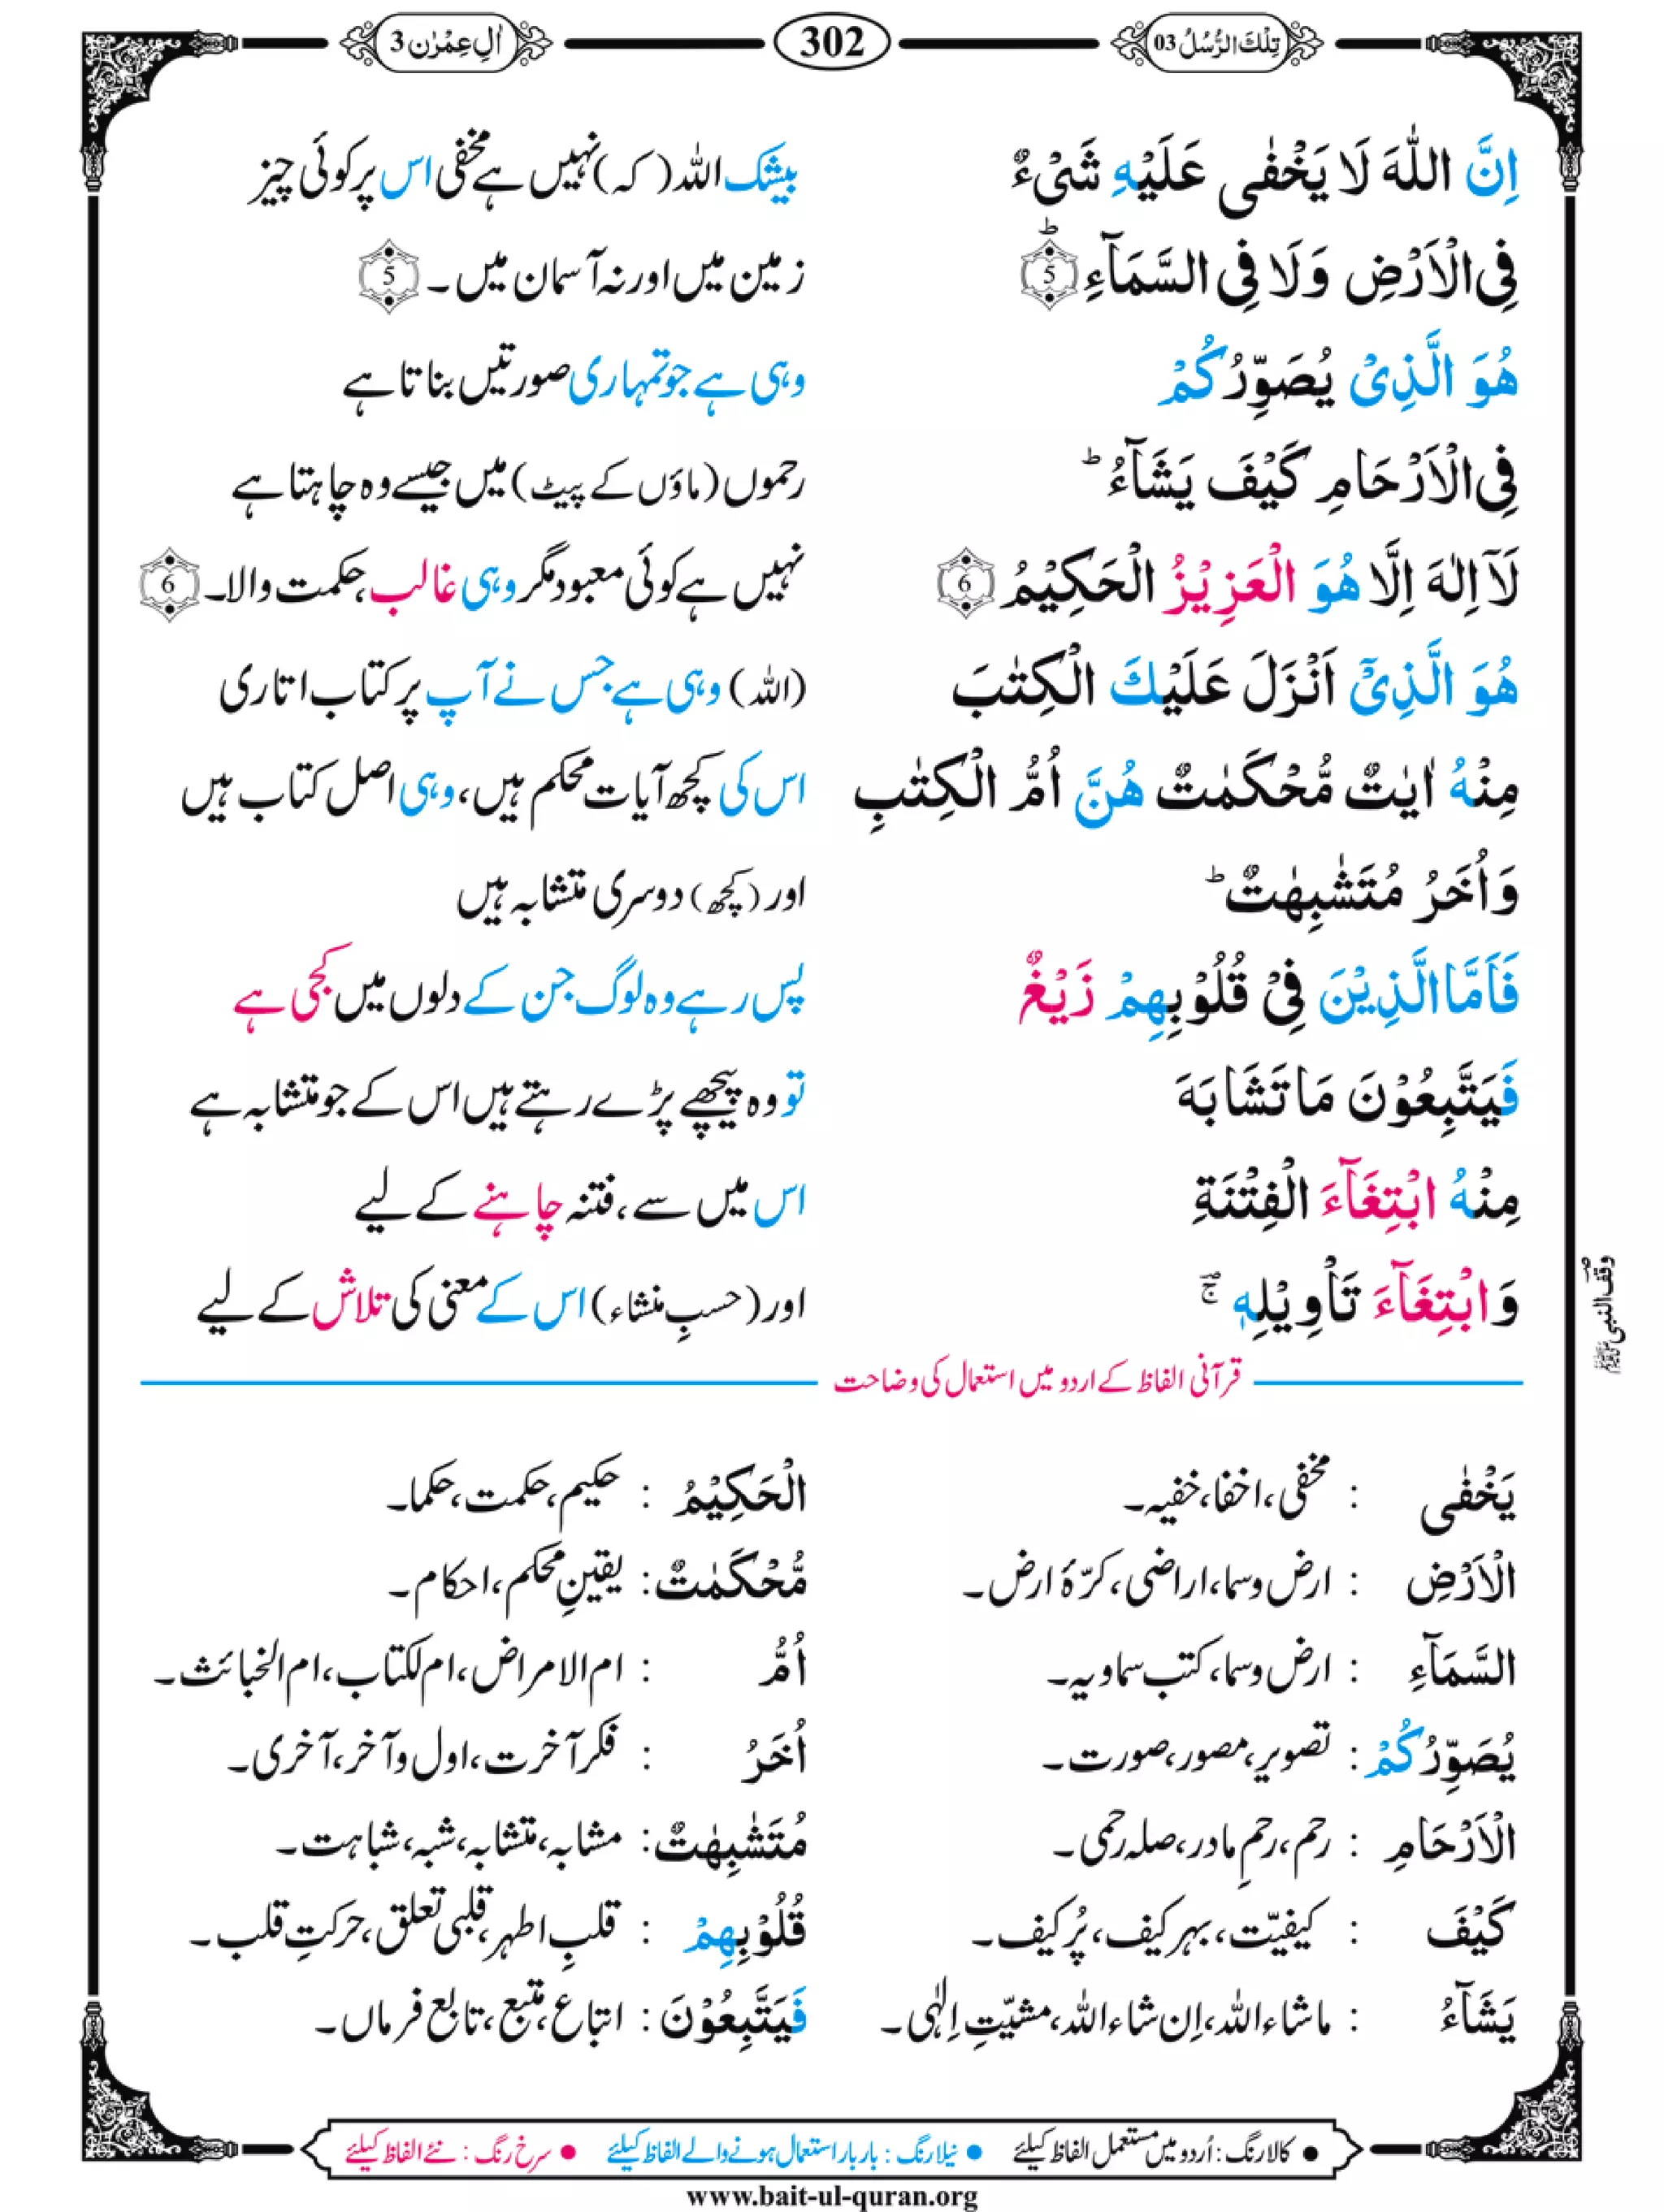 تِلْكَ الرُّسُلُ 03
302
اٰلِ عِمْرٰن 3
اِنَّ اللّٰهَ لَا يَخْفٰى عَلَيْهِ شَىْءٌ
بیشک اللہ (کہ) نہیں ہے مخفی اس پر کوئی چیز
فِى الْاَرْضِ وَلَا فِى السَّمَآءِ ؕ 5
زمین میں اور نہ آسمان میں ۔ 5
هُوَ الَّذِىْ يُصَوِّرُكُمْ
وہی ہے جو تمہاری صورتیں بناتا ہے
فِى الْاَرْحَامِ كَيْفَ يَشَآءُ ؕ
رحموں (ماؤں کے پیٹ) میں جیسے وہ چاہتا ہے
لَاۤ اِلٰهَ اِلَّا هُوَ الْعَزِيْزُ الْحَكِيْمُ 6
نہیں ہے کوئی معبود مگر وہی غالب، حکمت والا۔ 6
هُوَ الَّذِىْۤ اَنْزَلَ عَلَيْكَ الْكِتٰبَ
(اللہ) وہی ہے جس نے آپ پر کتاب اتاری
مِنْهُ اٰيٰتٌ مُّحْكَمٰتٌ هُنَّ اُمُّ الْكِتٰبِ
اس کی کچھ آیات محکم ہیں، وہی اصل کتاب ہیں
وَاُخَرُ مُتَشٰبِهٰتٌ ؕ
اور (کچھ) دوسری متشابہ ہیں
فَاَمَّا الَّذِيْنَ فِىْ قُلُوْبِهِمْ زَيْغٌ
پس رہے وہ لوگ جن کے دلوں میں کجی ہے
فَيَتَّبِعُوْنَ مَا تَشَابَهَ
تو وہ پیچھے پڑے رہتے ہیں اس کے جو متشابہ ہے
مِنْهُ ابْتِغَآءَ الْفِتْنَةِ
اس میں سے، فتنہ چاہنے کے لیے
وَابْتِغَآءَ تَاْوِيْلِهٖ ۚ
اور (حسبِ منشاء) اس کے معنی کی تلاش کے لیے
وقف النبی ﷺ
قرآنی الفاظ کے اردو میں استعمال کی وضاحت
يَخْفٰى : مخفی، اخفا، خفیہ۔
الْاَرْضِ : ارض و سما، اراضی، کرّۂ ارض۔
السَّمَآءِ : ارض و سما، کتب سماویہ۔
يُصَوِّرُكُمْ : تصویر، مصور، صورت۔
الْاَرْحَامِ : رحم، رحمِ مادر، صلہ رحمی۔
كَيْفَ : کیفیّت، بہر کیف، پُر کیف۔
يَشَآءُ : ماشاء اللہ، اِن شاء اللہ، مشیّتِ اِلٰہی۔
الْحَكِيْمُ : حکیم، حکمت، حکما۔
مُّحْكَمٰتٌ : یقینِ محکم، احکام۔
اُمُّ : ام الامراض، ام الکتاب، ام الخبائث۔
اُخَرُ : فکر آخرت، اول و آخر، آخری۔
مُتَشٰبِهٰتٌ : مشابہ، متشابہ، شبہ، شباہت۔
قُلُوْبِهِمْ : قلبِ اطہر، قلبی تعلق، حرکتِ قلب۔
فَيَتَّبِعُوْنَ : اتباع، متبع، تابع فرماں۔
● کالا رنگ : اُردو میں مستعمل الفاظ کیلئے ● نیلا رنگ : بار بار استعمال ہونے والے الفاظ کیلئے ● سرخ رنگ : نئے الفاظ کیلئے
www.bait-ul-quran.org